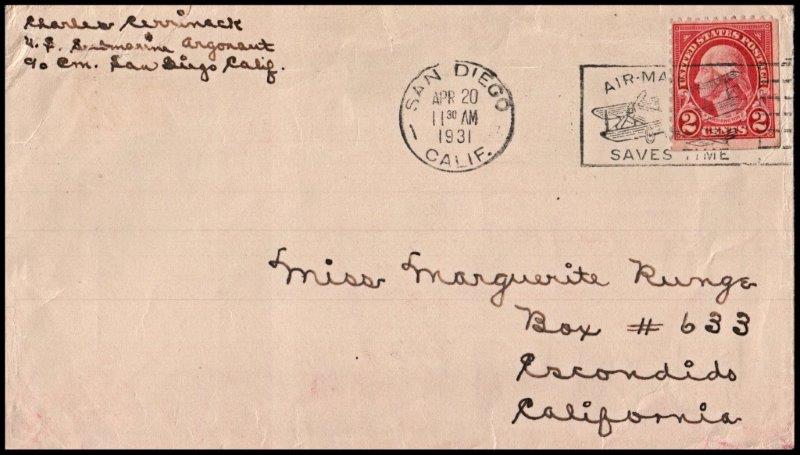 Charles Cerrinack
U.S. Submarine Argonaut
c/o P.m. San Diego Calif.
SAN DIEGO
APR 20
11 30 AM
1931
CALIF.
AIR-MA
SAVES TIME
UNITED STATES POSTAGE
2 CENTS 2
Miss Marguerite Runge
Box # 633
Escondido
California